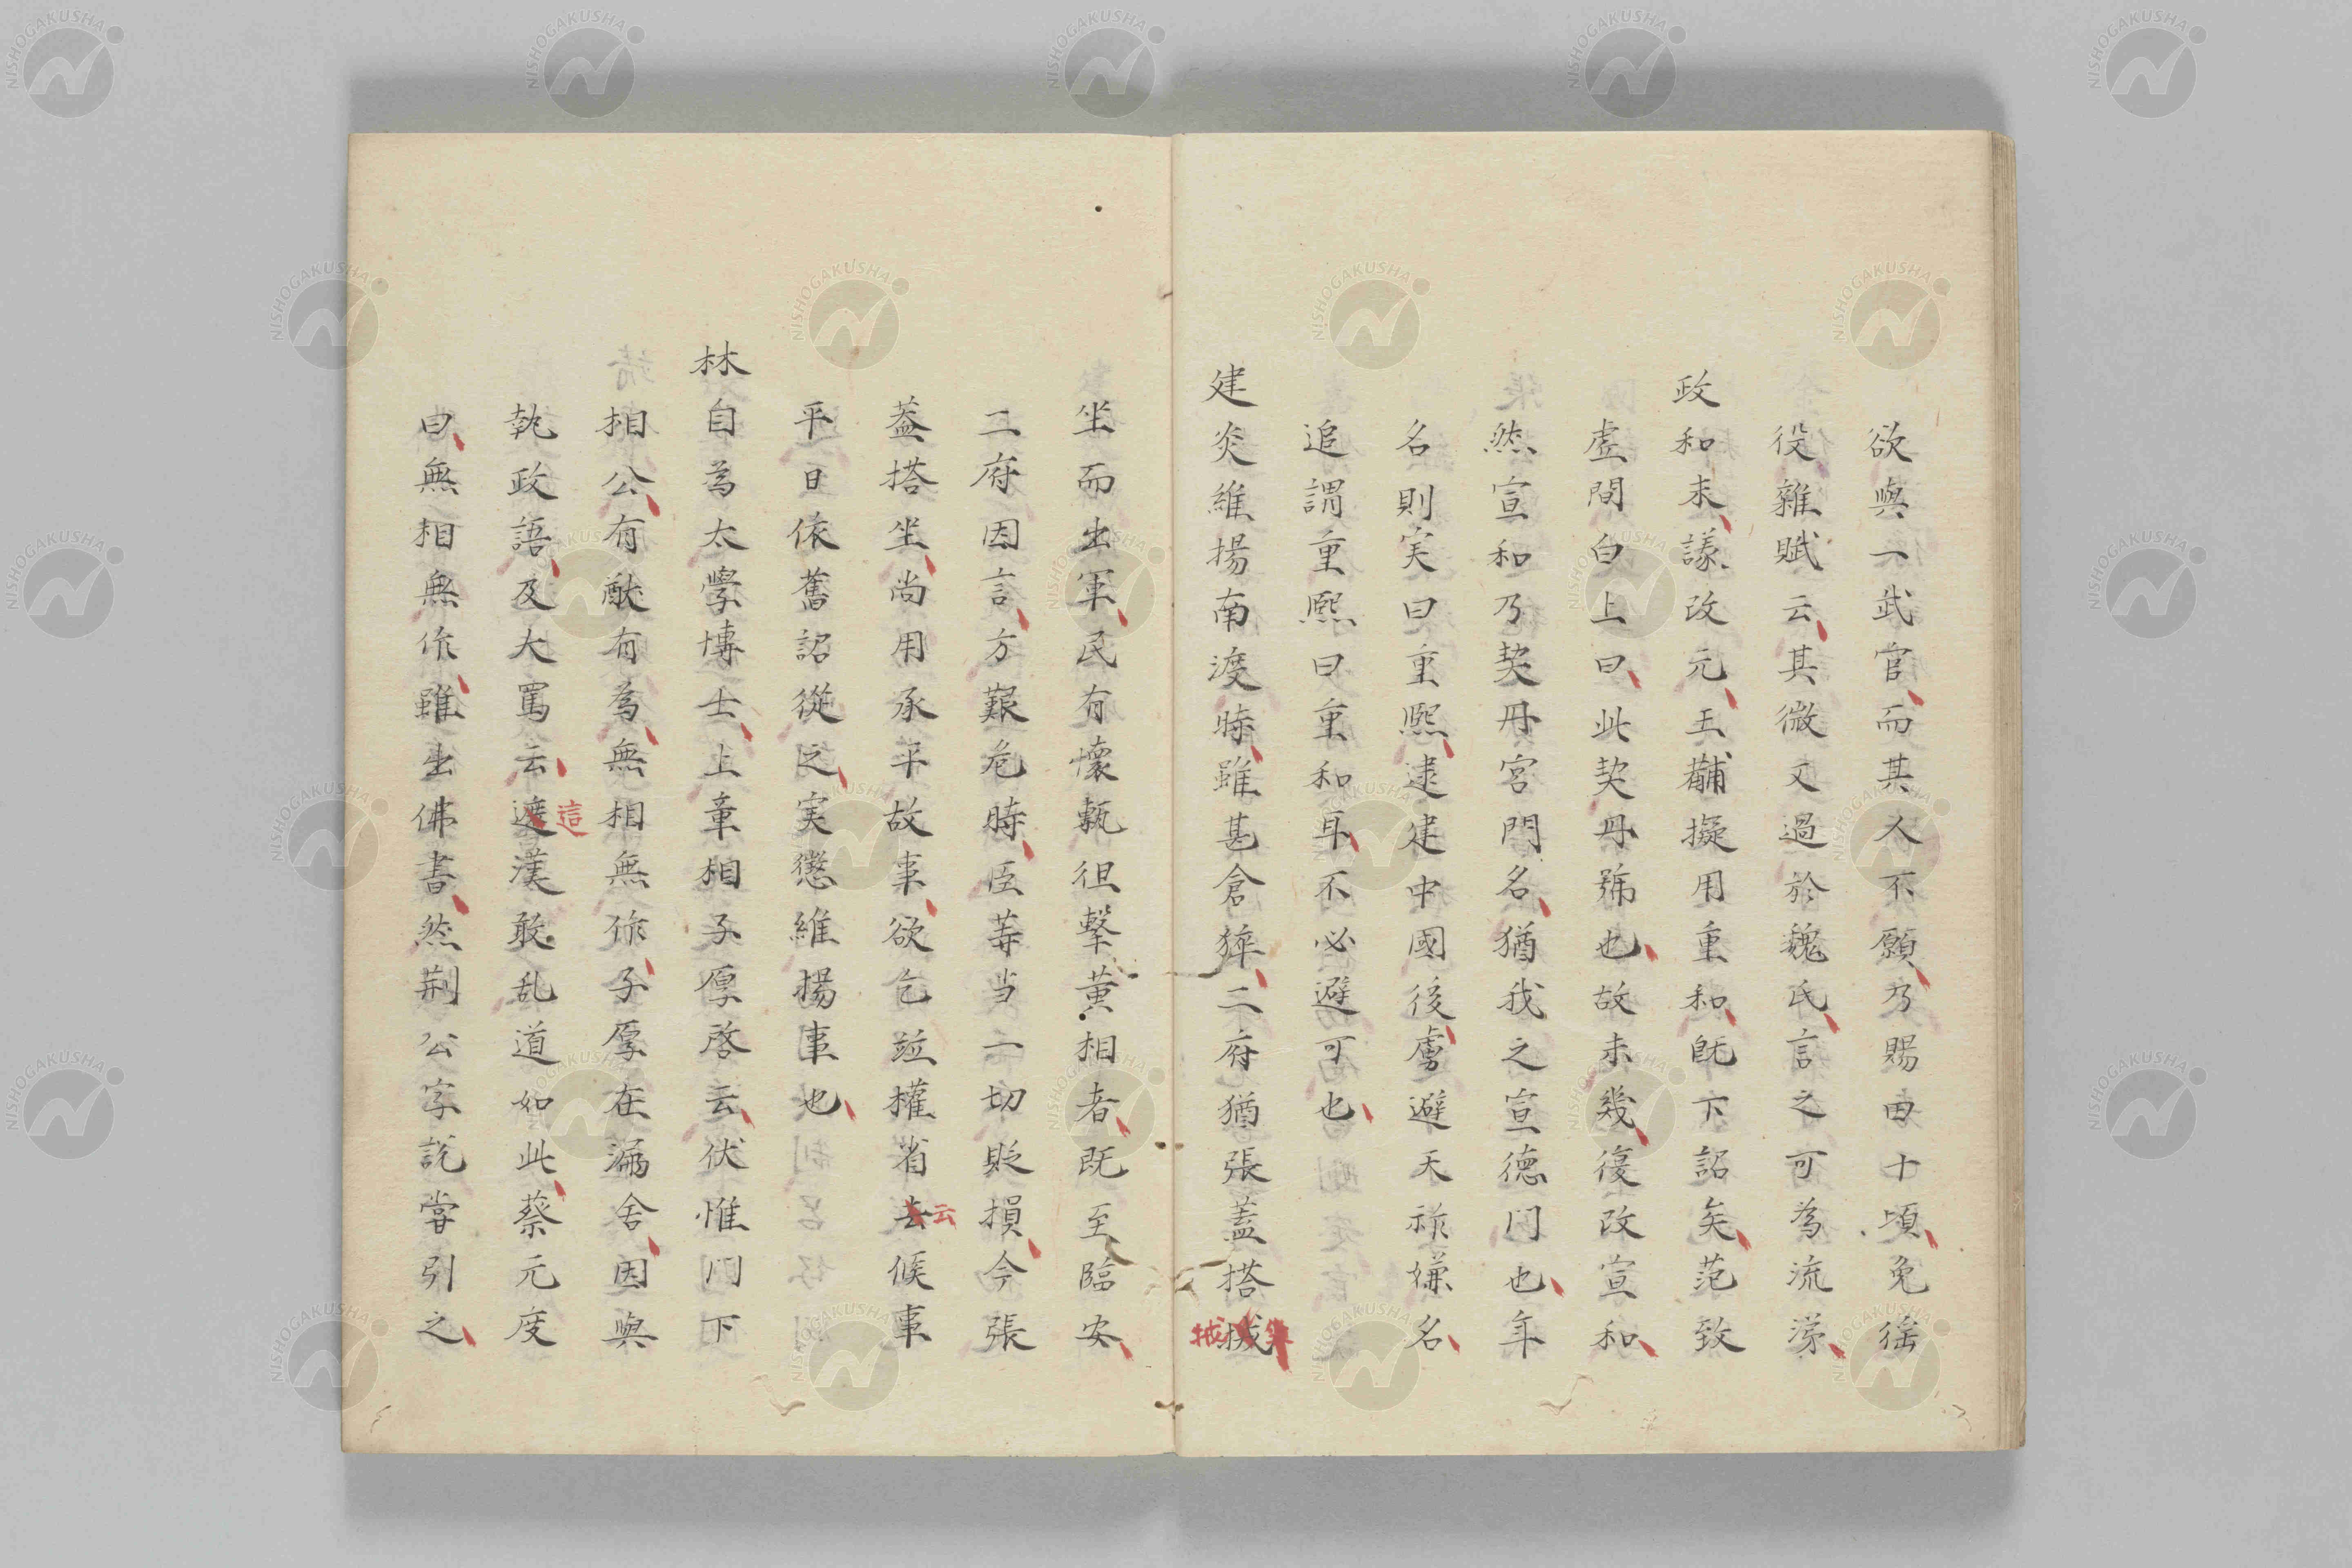 欲與一武官而其人不願乃賜田十頃免徭
役雜賦云其微文過於魏氏言之可為流涕
政和末議改元王黼擬用重和既下詔矣范致
虛間白上曰此契丹號也故未幾復改宣和
然宣和乃契丹宮門名猶我之宣德門也年
名則実曰重熙建中國後虜避天祚嫌名
追謂重熙曰重和耳不必避可也
建炎維揚南渡時雖甚倉猝二府猶張蓋搭
坐而出軍民有懷甎狙擊黄相者既至臨安
二府因言方艱危時臣等当一切貶損今張
蓋搭坐尚用承平故事欲乞並權省去候事
云
平日依舊詔從之実懲維揚事也
林自為太學博士上章相子厚啓云伏惟門下
相公有猷有為無相無作子厚在漏舍因與
執政語及大罵云遮漢敢乱道如此蔡元度
這
曰無相無作雖出佛書然荆公字説嘗引之
NISHOGAKUSHA